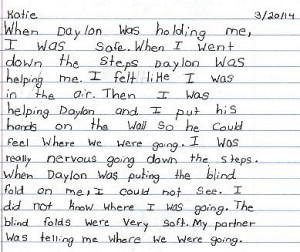 Katie 3/20/14
When Daylon was holding me,
I was safe. When I went
down the steps Daylon was
helping me. I felt like I was
in the air. Then I was
helping Daylon and I put his
hands on the wall so he could
feel where we were going. I was
really nervous going down the steps.
When Daylon was puting the blind
fold on me, I could not see. I
did not know where I was going. The
blind folds were very soft. My partner
was telling me where we were going.